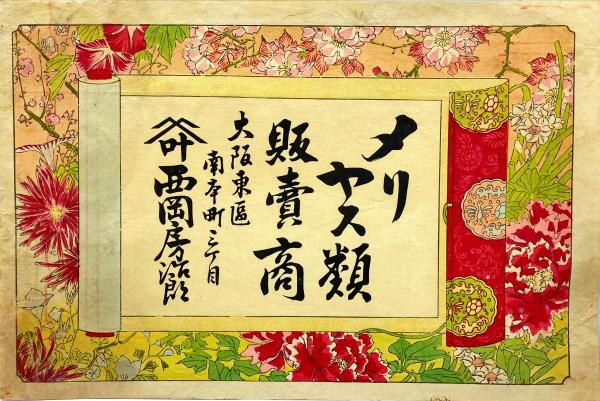 メリ
ヤス類
販賣商
大阪東區
南本町二丁目
叶
西岡房治郎